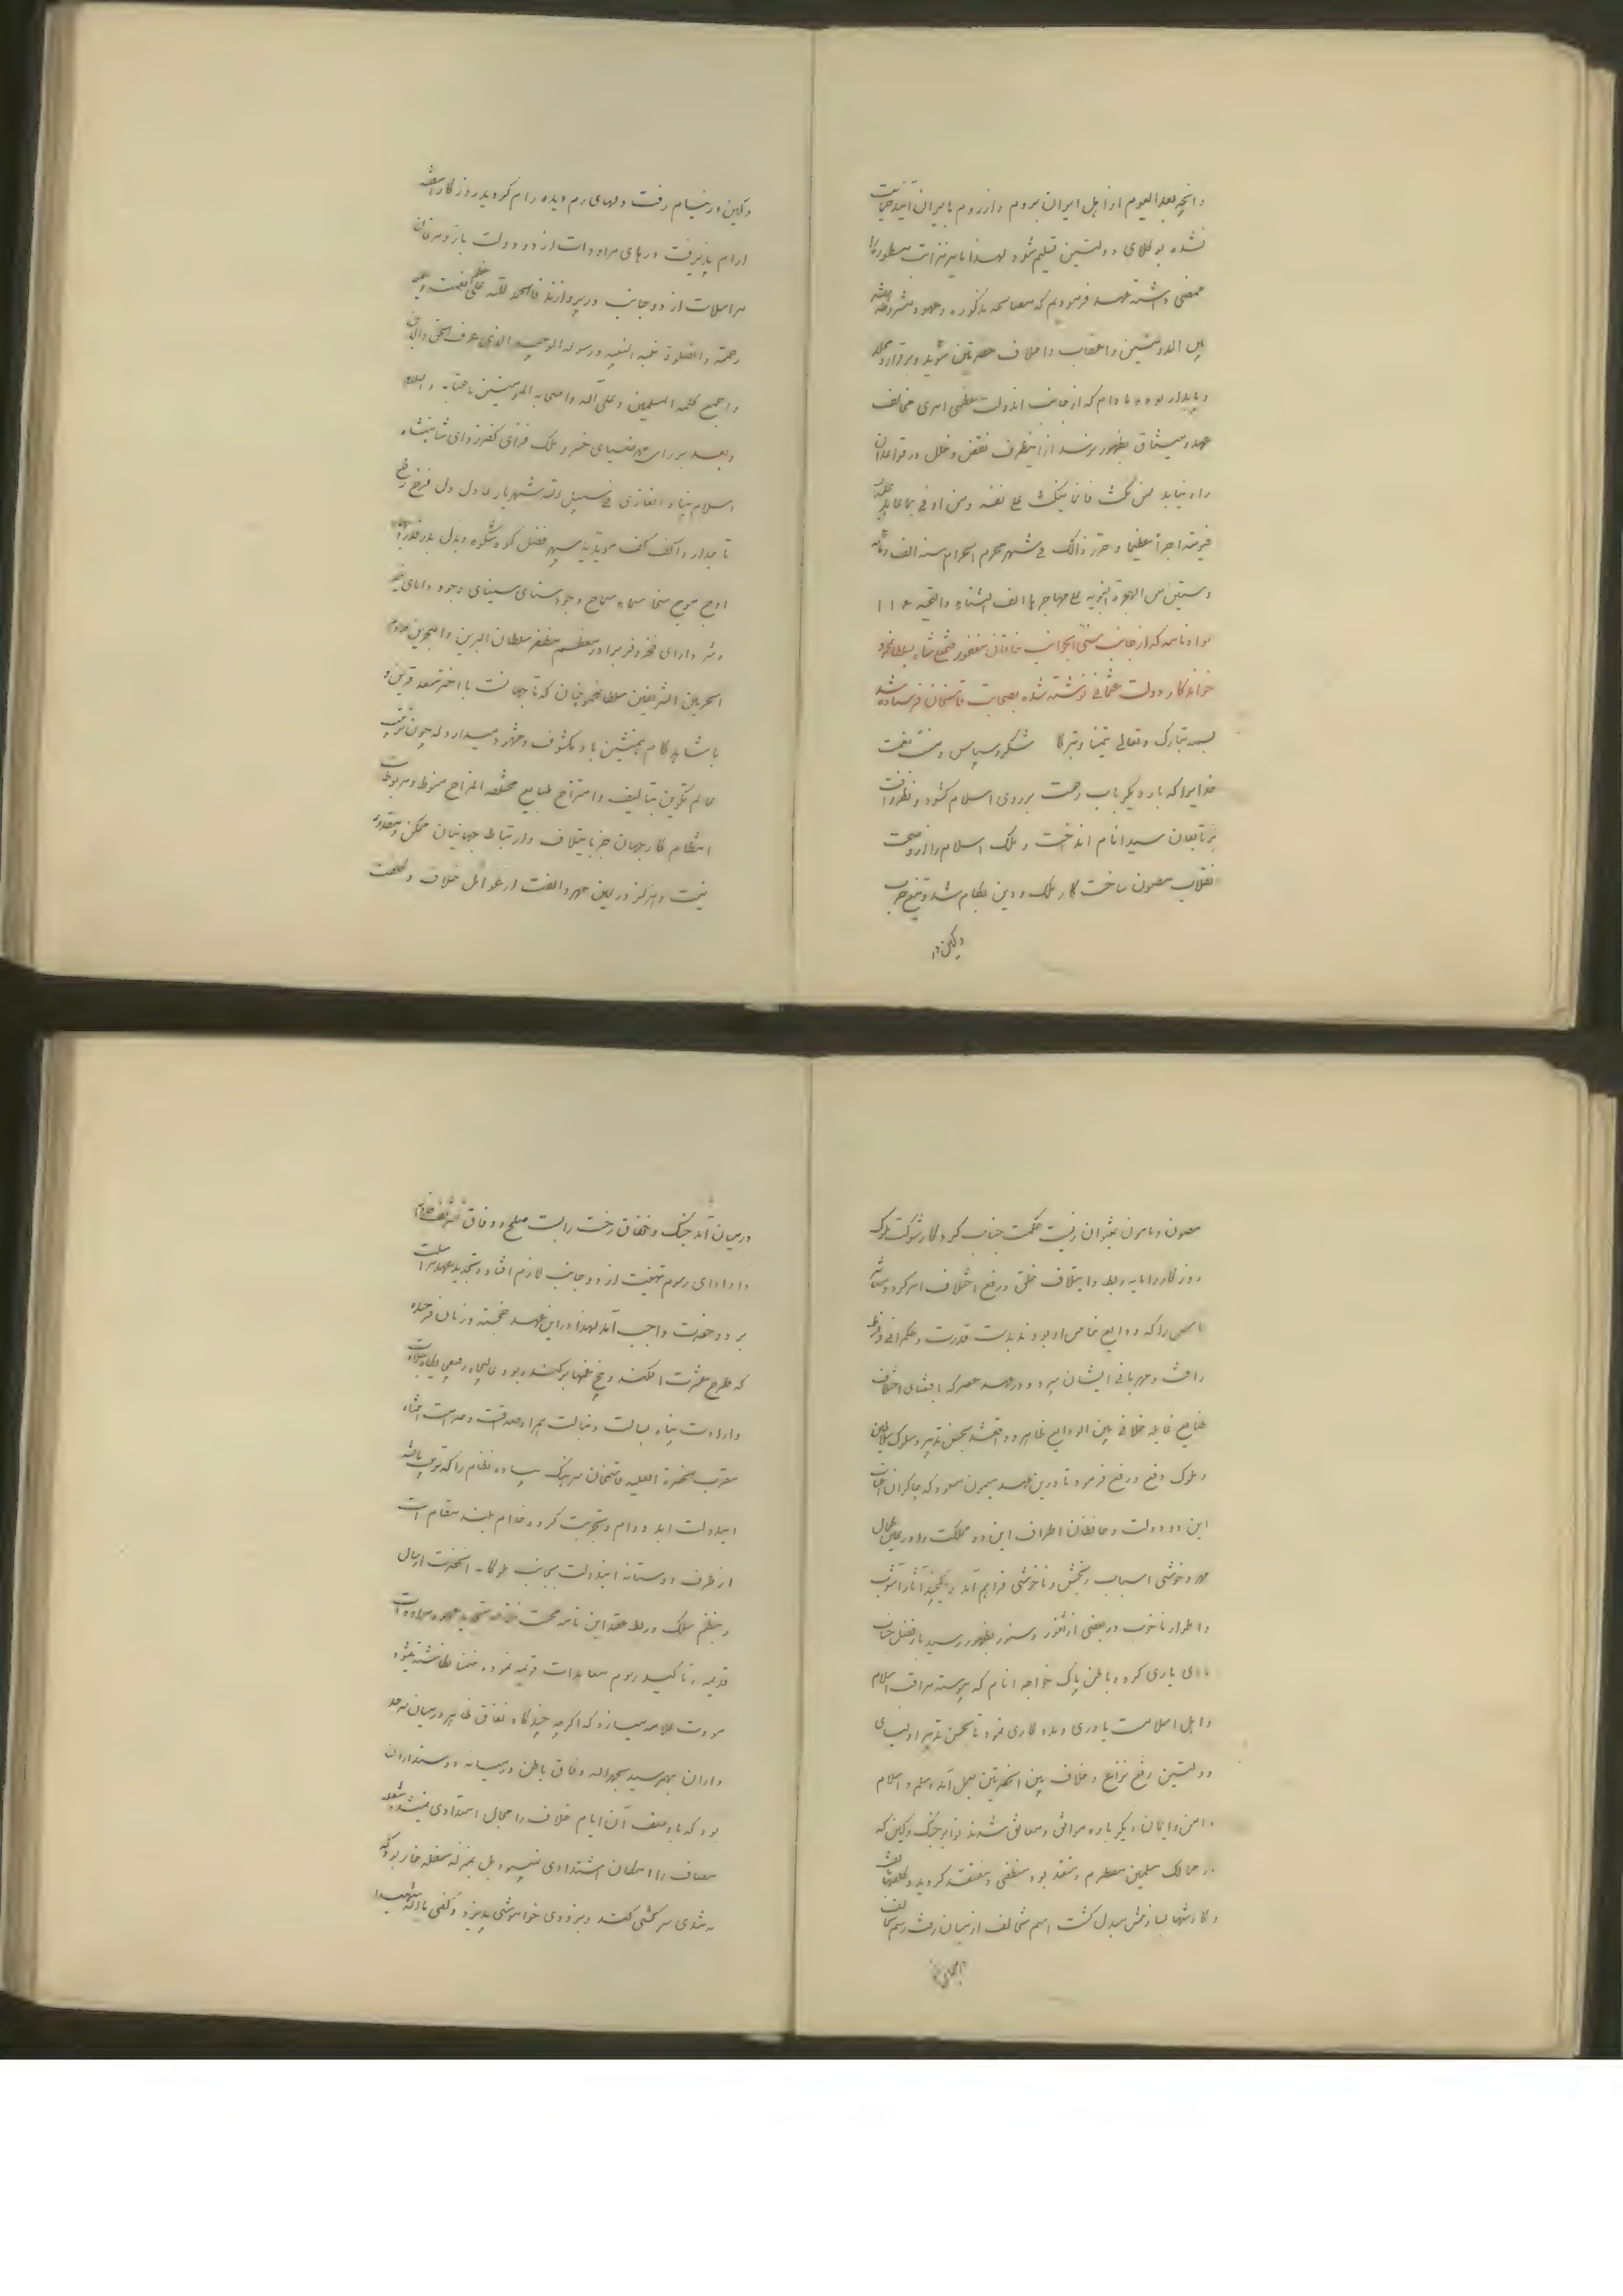 و آنچه بعد الیوم از اهل ایران بروم و از روم بایران آید حمایت
نشده بوکلای دولتین تسلیم شود لهذا ما نیز مراتب مسطوره را
ممضی داشته عهد فرمودیم که مصالحه مذکوره و عهود مشروطه
بین الدولتین و اعقاب و اخلاف حضرتین مؤید و برقرار و
و پایدار بوده مادام که از جانب آندولت عظمی امری مخالف
عهد و میثاق بظهور نرسد از اینطرف نقض و خلل در قواعد آن
راه نیابد فمن نکث فانما ینکث علی نفسه و من اوفی بما عاهد علیه
فسیؤتیه اجراً عظیما و حرر ذالک فی شهر محرم الحرام سنه الف و مائه
و ستین من الهجرة النبویه علی مهاجرها الف الثناء و التحیه
سواد نامه که از جانب سنی الجوانب خاقان مغفور فتحعلی شاه بسلطان محمود
خواندکار دولت عثمانی نوشته شده بصحابت قاسمخان فرستاده شد
بسمه تبارک و تعالی تیمنا و تبرکا شکر و سپاس و منت نعمت
خدایرا که بار دیگر باب رحمت بر روی اسلام گشود و نظر رأفت
بر تابعان سید انام انداخت و ملک اسلام را از وصمت
انقلاب مصون ساخت کار ملک و دین بنظام شد و تیغ حرب
و کین در
و کین در نیام رفت دلهای رمیده رام گردید روز کار آشفته
آرام پذیرفت درهای مراودات از دو دولت باز و مرغان
مراسلات از دو جانب در پرواز فالحمد لله علی نعمته و
رحمته و الصلوة علی نبیه النبیه و رسوله الوجیه الذی عرف الحق
و اجمع کلمه المسلمین و علی آله و اصحابه المؤمنین
و بعد بر رای مهر ضیای خسرو ملک فزای کفرزدای شاهنشاه
اسلام پناه الغازی فی سبیل الله شهریار عادل دل فرخ رخ
تاجدار
اوج موج سخا سماء سماح وجود سنای سینای وجود دانای خیر
و شر دارای فخر و فر برادر معظم مظفر سلطان البرین و البحرین خادم
الحرمین الشریفین سلطان محمود خان که تا جهانست با اختر سعد قرین و
با شاهد کام همنشین باد مکشوف و مشهود میدارد که چون ترتیب
عالم تکوین بتالیف و امتزاج طبایع مختلفه المزاج منوط و مربوط است
انتظام کار جهان جز بایتلاف و ارتباط جهانیان ممکن و مقدور
نیست و هرگز در عین مهر و الفت از عوایل خلاف و
مصون و مامون نمیتوان زیست حکمت جناب کردکار شوکت ملوک
روزکار را مایه ربط و ایتلاف خلق و رفع اختلاف امر کرد و
ناس را که ودایع خاص او بودند بدست قدرت و حکمرانی و فرط
رأفت و مهربانی ایشان سپرد و در عهد عصر که باقتضای اختلاف
طبایع غایله خلافی بین الودایع ظاهر و واقع شد بحسن تدبیر و سلوک سلاطین
و ملوک دفع و رفع فرمود تا درین عهد میمون مسعود که چاکران
این دو دولت و حافظان اطراف این دو مملکت را در عین کمال
مهر و خوشی اسباب رنجش و ناخوشی فراهم آمد و یکچند آثار آشوب
و اطوار ناخوب در بعضی از ثغور و سنور بظهور رسید باز فضل جناب
باری یاری کرد و باطن پاک خواجه انام که پیوسته مراقب اسلام
و اهل اسلامست یاوری و مددکاری نمود تا بحسن تدبیر اولیای
دولتین رفع نزاع و خلاف بین الحضرتین بعمل آمده سلم و اسلام
و امن و ایمان دیگر باره موافق و معانق شدند نوایر جنگ و کین که
در ممالک مسلمین مضطرم و متقد بود منطفی و مفتقد گردید و کلفتها بالفت
و کاوشها بسازش مبدل گشت اسم تخالف از میان رفت رسم تحالف
در میان آمد جنگ و نفاق رخت رابست صلح و وفاق
و ادای رسوم تهنیت از دو جانب لازم افتاد و تجدید عهد مراسلت
بر دو حضرت واجب آمد لهذا در این عهد خجسته و زمان فرخنده
که طرح معاشرت افکنده و بیخ غمها برکنده بود عالیجاه رفیع جایگاه
و ارادت پناه بسالت و نبالت همراه صداقت و صرامت انتباه
مقرب الحضرة العلیه قاسمخان سرهنگ پیاده نظام را که تربیت یافته
ایندولت ابد دوام و تجربت کرده خدام بلند مقام است
از طرف دوستانه ایندولت بجانب ملوکانه آنحضرت ارسال
و بنظم سلک و ربط عقد این نامه محبت ختامه تجدید عهود موالات
قدیمه و تاکید رسوم معاهدات قویمه نموده ضمنا نگاشته
مودت علامه میسازد که اگر چه چندگاه نفاق ظاهر در میان سرحد
داران بهم رسید بحمدالله وفاق باطن در میانه دوستداران
بود که باد مخالف آن ایام خلاف را مجال امتدادی نمیشد و شعله
مصاف را امکان اشتدادی نمیبود بل بمنزله شعله خار بود که
بتندی سرکشی کند و بزودی خواموشی پذیرد و کفی بالله شهیدا